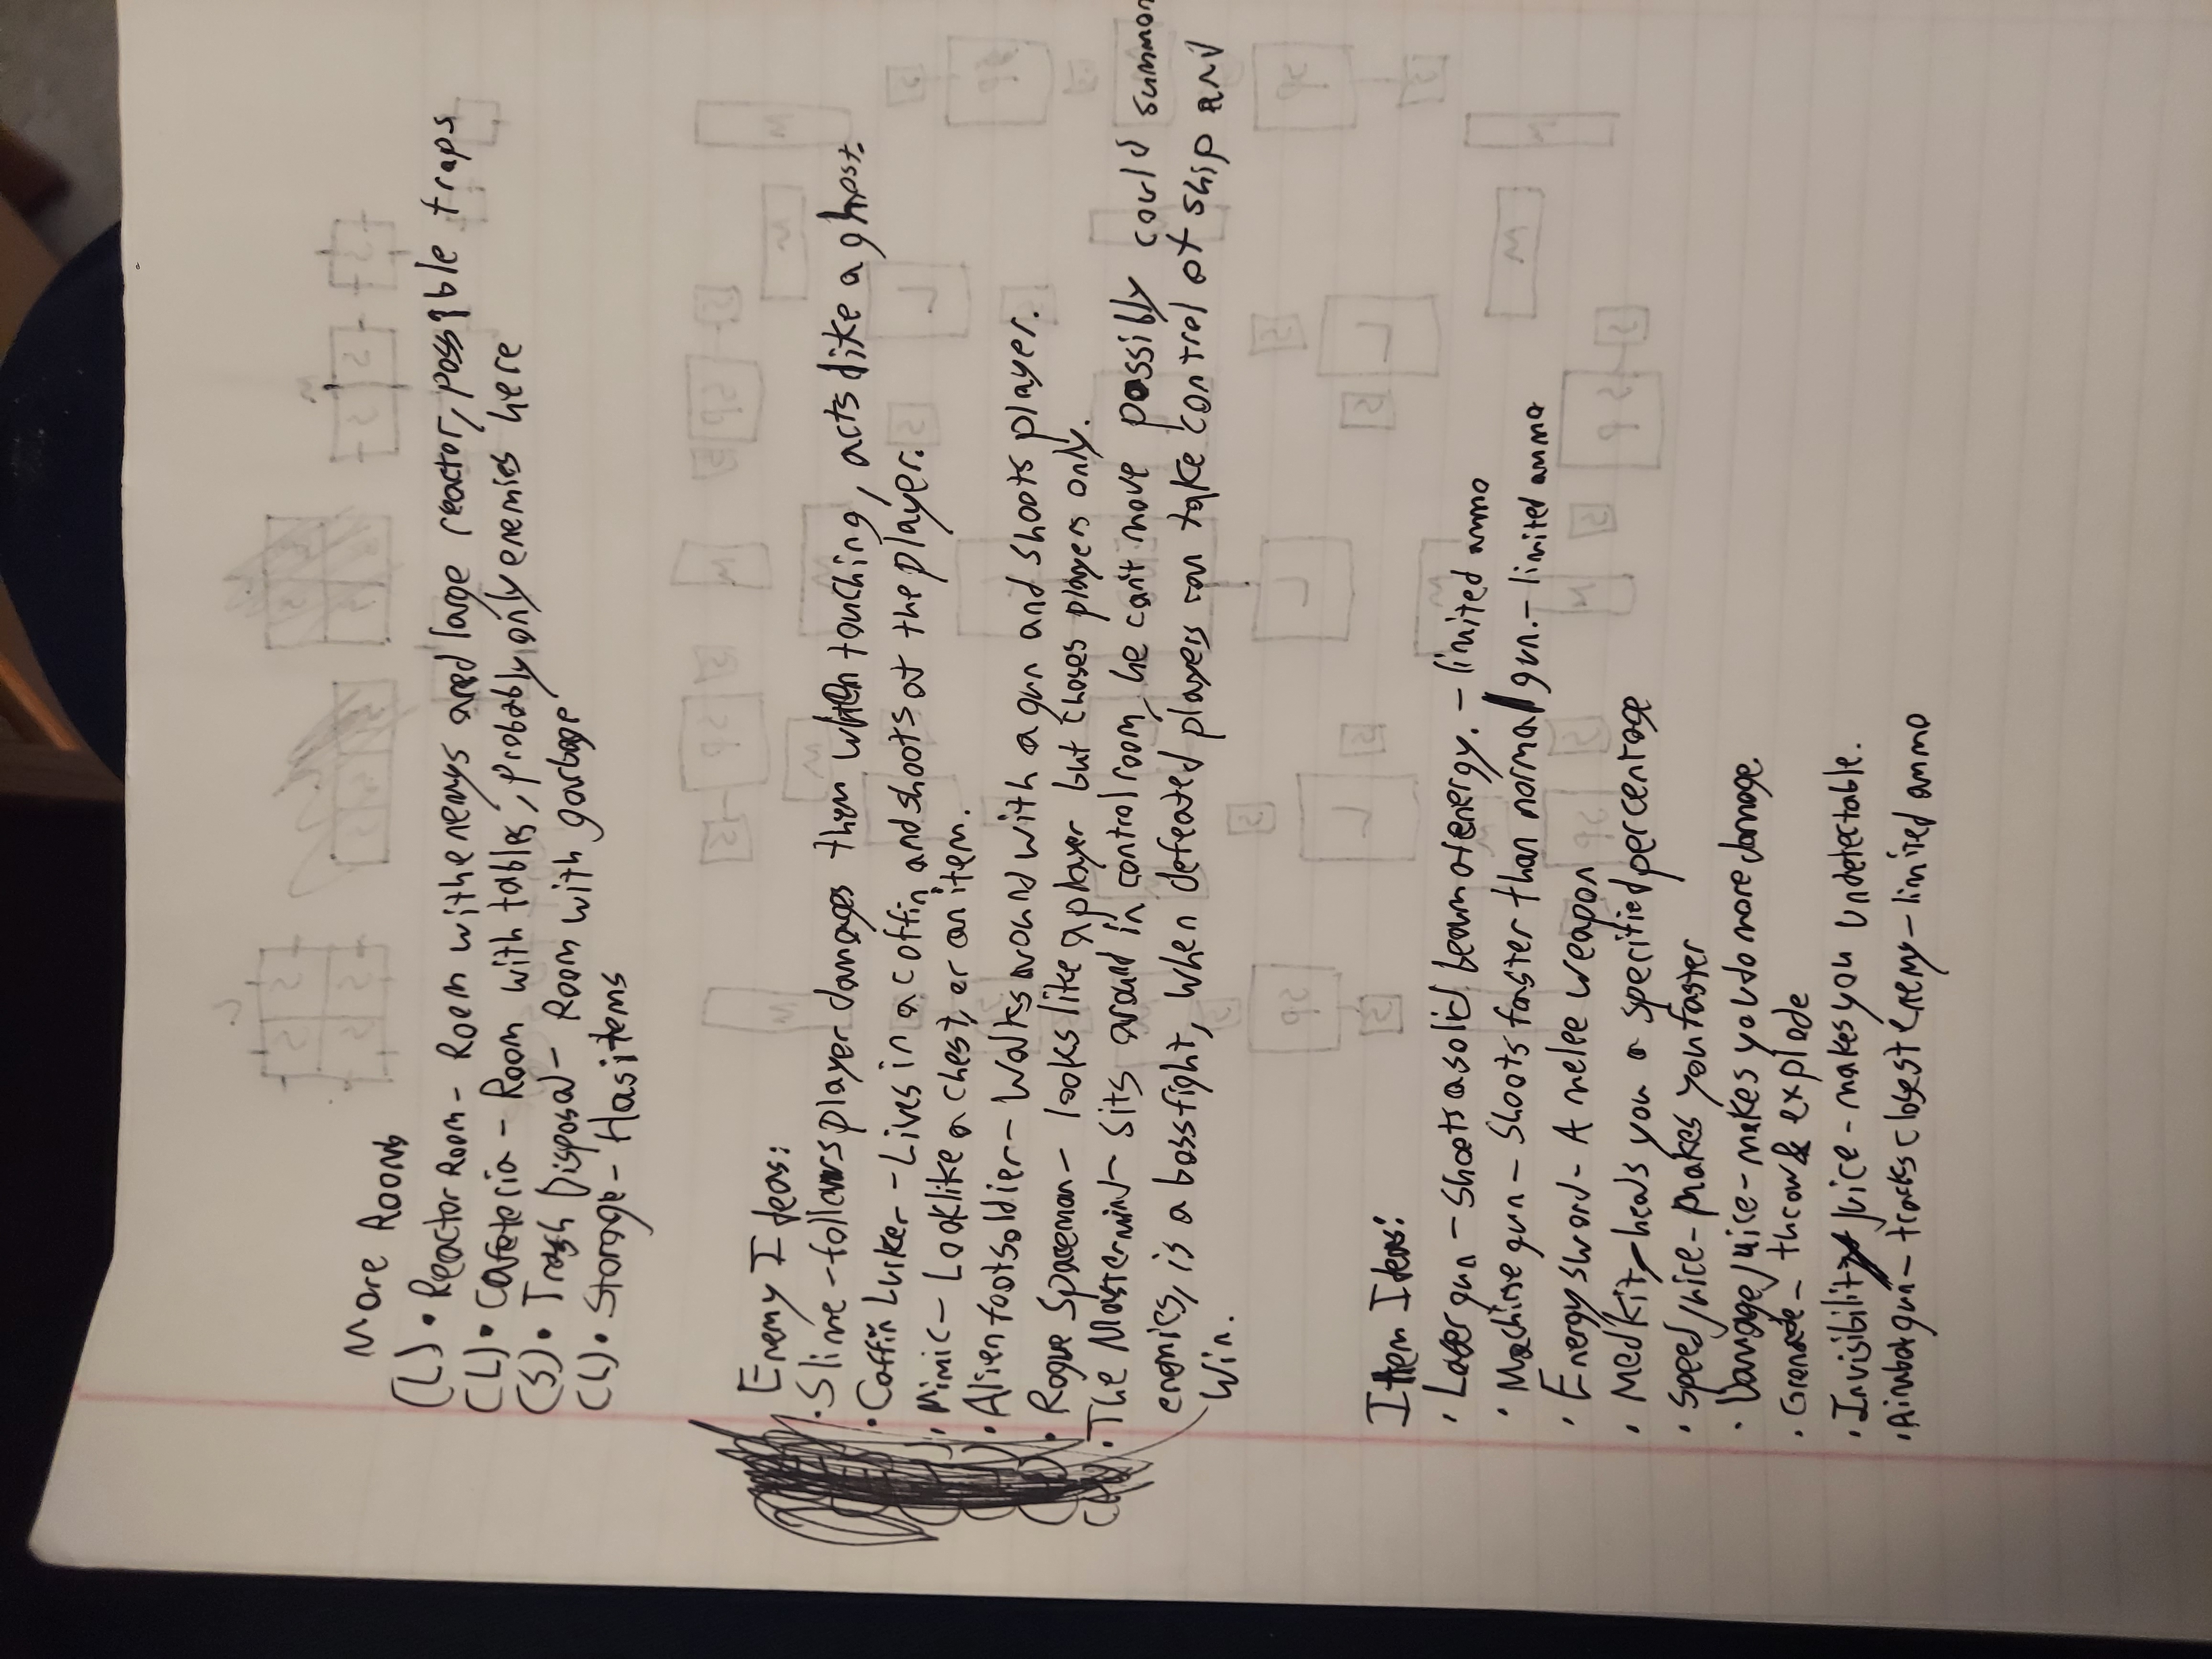 More Rooms
(L)• Reactor Room - Room with enemys and large reactor, possible traps
(L)• Cafeteria - Room with tables, probably only enemies here
(S)• Trash Disposal - Room with garbage
(L)• Storage - Has items
Enemy Ideas:
• Slime - follows player damages them when touching, acts like a ghost.
• Coffin Lurker - Lives in a coffin and shoots at the player.
• Mimic - Look like a chest, or an item.
• Alien footsoldier - Walks around with a gun and shoots player.
• Rogue Spaceman - looks like a player but chases players only.
• The Mastermind - Sits around in control room, he can't move possibly could summon
enemies, is a boss fight, when defeated players can take control of ship and
Win.
Item Ideas:
• Laser gun - Shoots a solid beam of energy. - limited ammo
• Machine gun - Shoots faster than normal gun. - limited ammo
• Energy sword - A melee weapon
• Med Kit - heals you a specified percentage
• Speed juice - makes you faster
• Damage juice - makes you do more damage.
• Grenade - throw & explode
• Invisibility juice - makes you undetectable.
• Aimbot gun - tracks closest enemy - limited ammo